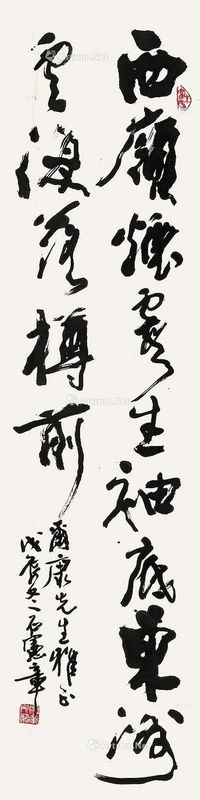 西嶺煙霞生袖底東洲
雲海落樽前
爾康先生雅正
戊辰冬石憲章